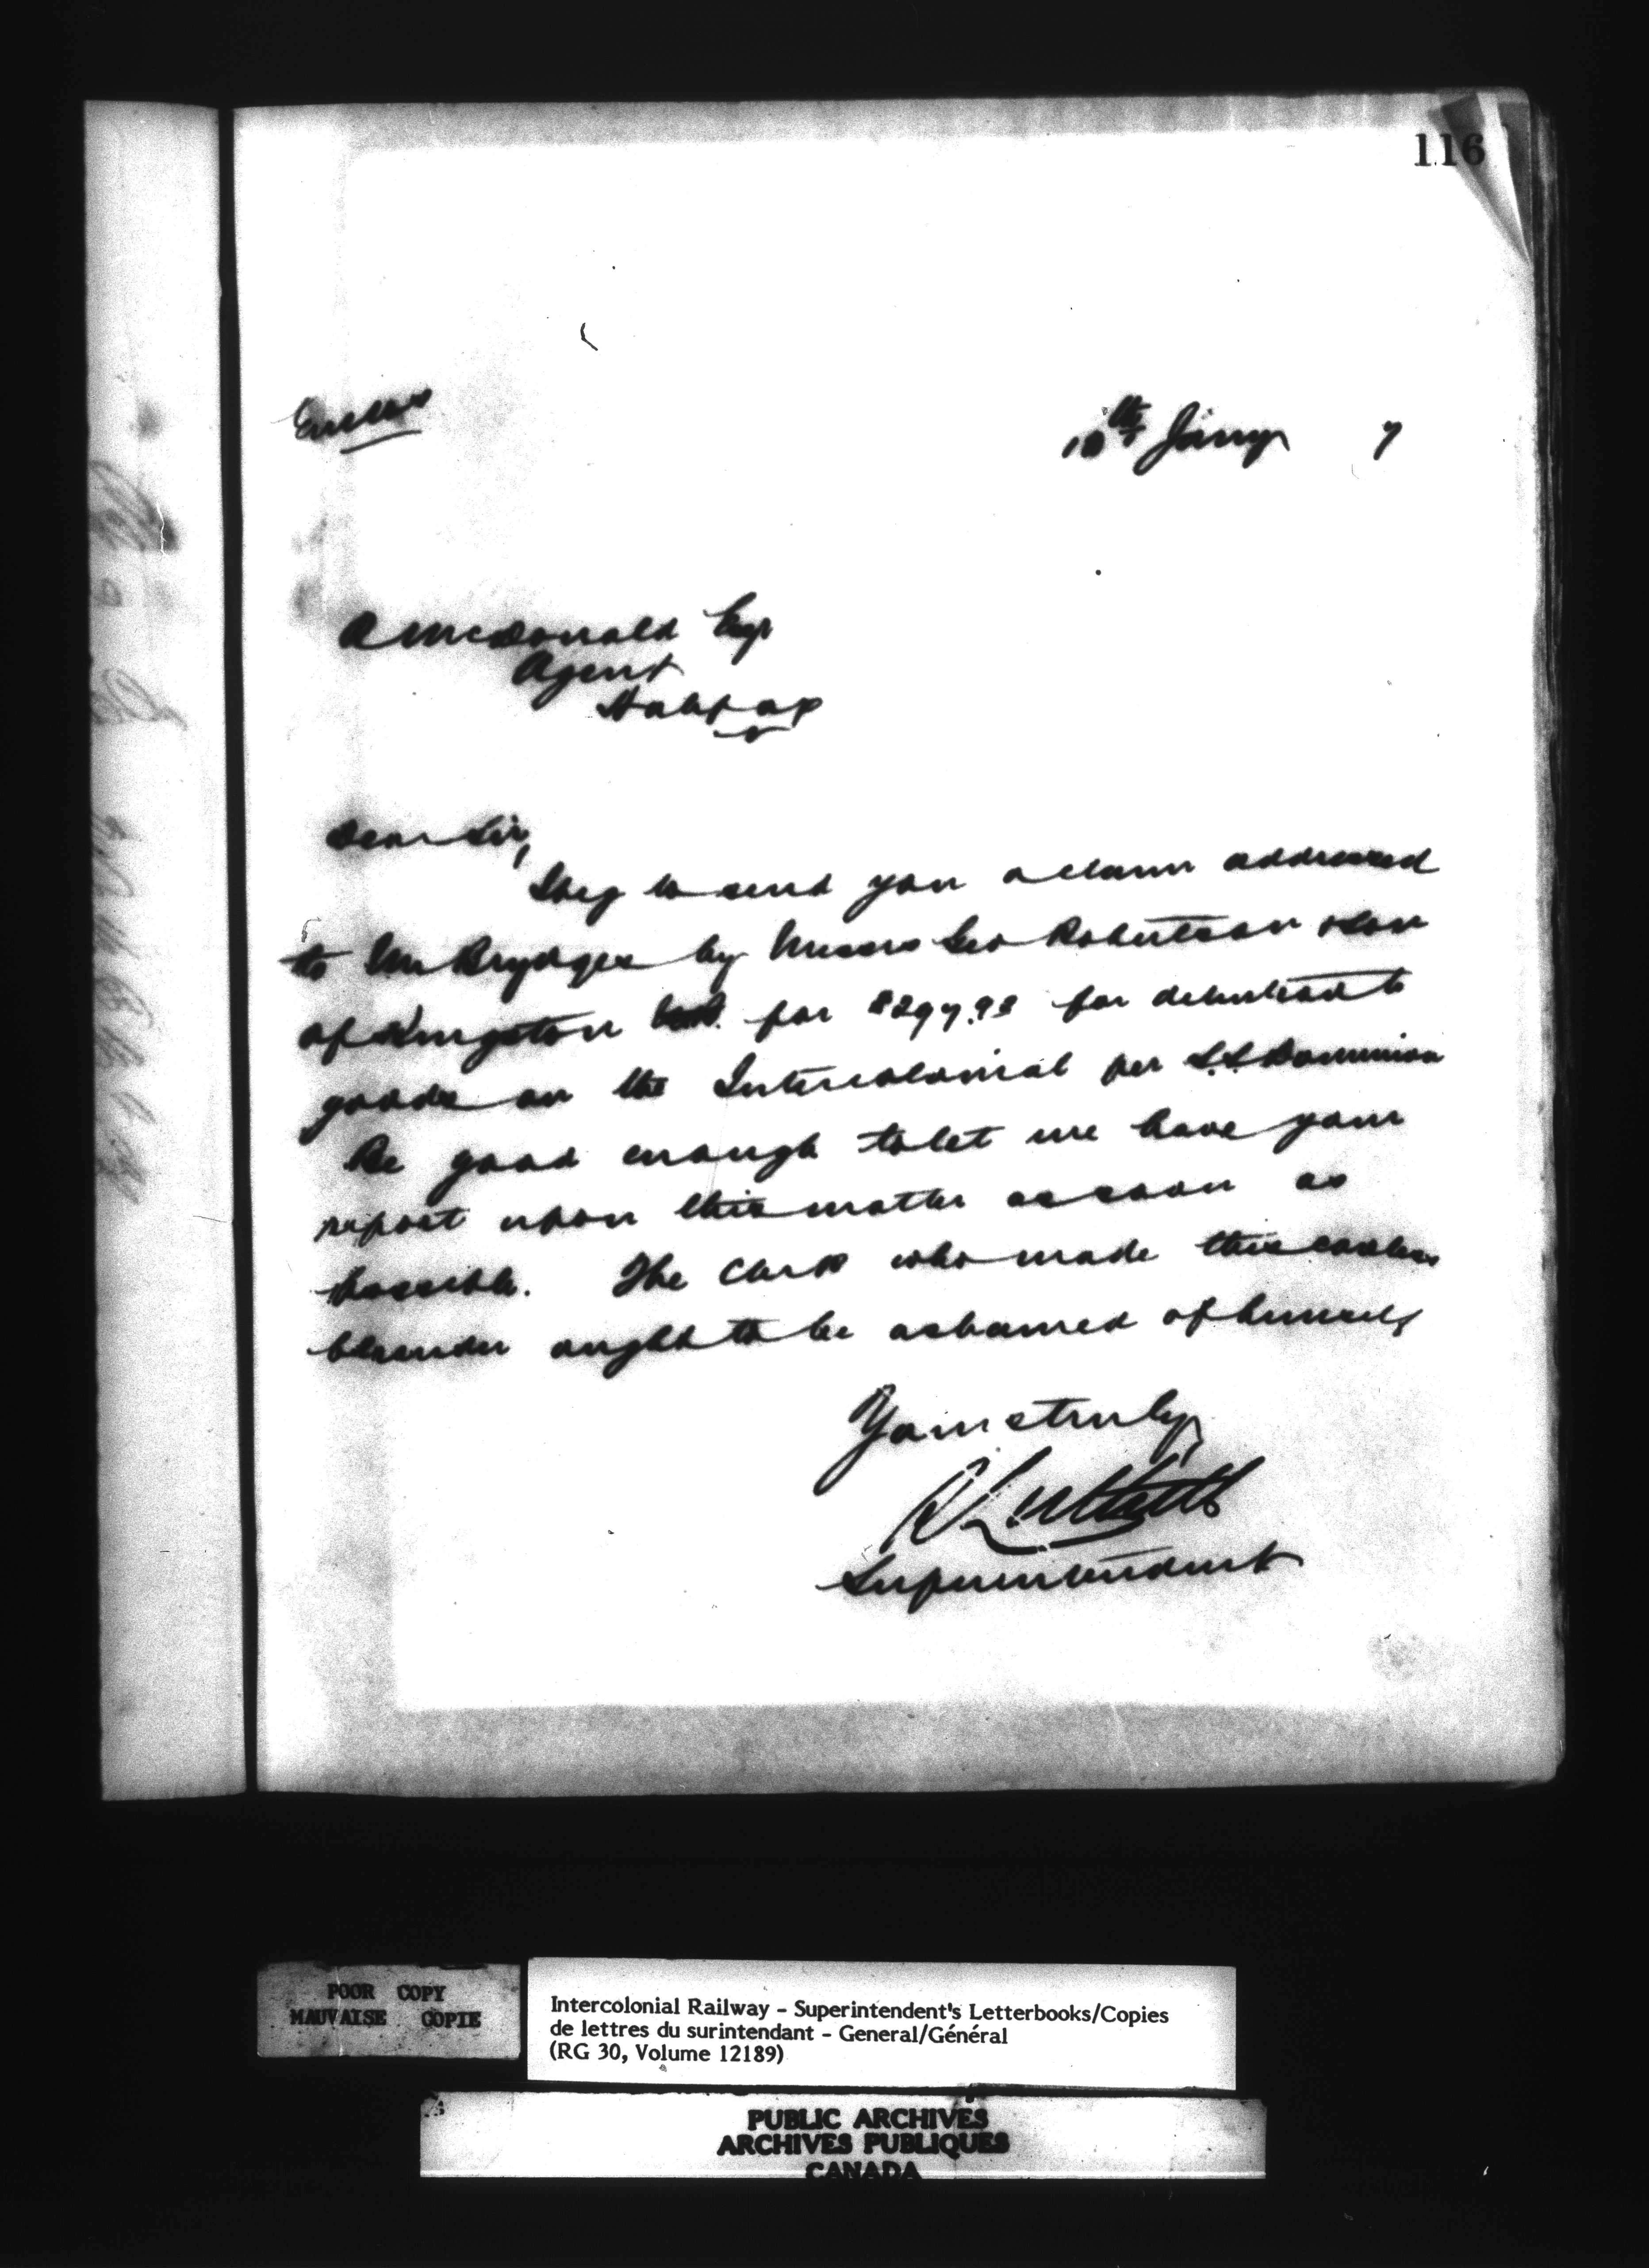 116
10th Jany 7
A McDonald Esqr
Agent
Halifax
Dear Sir,
I beg to send you a claim addressed
to Mr Brydges by Messrs Geo Robertson & Son
of Kingston for $297.98 for
goods on the Intercolonial per S.S. Dominion
Be good enough to let me have your
report upon this matter as soon as
possible. The Clerk who made this careless
blunder ought to be ashamed of himself
Yours truly
Superintendent
POOR COPY
MAUVAISE COPIE
Intercolonial Railway - Superintendent's Letterbooks/Copies
de lettres du surintendant - General/Général
(RG 30, Volume 12189)
PUBLIC ARCHIVES
ARCHIVES PUBLIQUES
CANADA